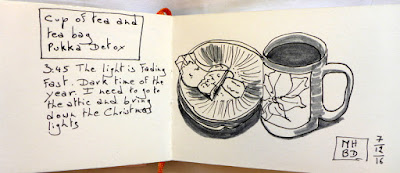 Cup of tea and
tea bag
Pukka Detox
3:45 The light is fading
fast. Dark time of the
year. I need to go to
the attic and bring
down the Christmas
lights
NH
BD
7
12
16